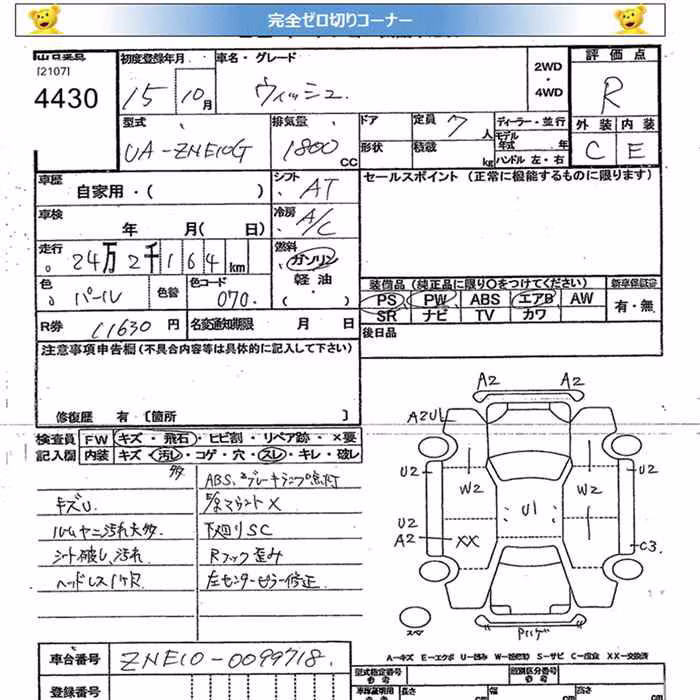 完全ゼロ切りコーナー
[2107]
4430
初度登録年月
15 10月
車名・グレード
ウィッシュ
2WD
・
4WD
評価点
R
外装 内装
C E
型式
UA-ZNE10G
排気量
1800 CC
ドア
形状
定員 7 人
積載 kg
ディーラー・並行
モデル年式 年
ハンドル 左・右
車歴
自家用・( )
シフト
AT
セールスポイント(正常に機能するものに限ります)
車検
年 月( 日)
冷房
A/C
走行
24万2千164km
燃料
ガソリン
軽油
・( )
色
パール
色替
色コード
070
装備品(純正品に限り○をつけてください)
新車保証書
PS PW ABS エアB AW
SR ナビ TV カワ
有・無
R券 11630円
名変通知期限 月 日
後日品
注意事項申告欄(不具合内容等は具体的に記入して下さい)
修復歴 有〔箇所 〕
検査員
記入欄
FW キズ・飛石・ヒビ割・リペア跡・×要
内装 キズ・汚レ・コゲ・穴・スレ・キレ・破レ
多
ABS、ブレーキランプ点灯
キズU.
マウントX
ルームヤニ汚れ大多
下廻りSC
シート破レ、汚れ
Rフック歪み
ヘッドレス1ケR
左センターピラー修正
A2 A2
A2UL
U2 U2
W2 W2
U1
U2
A2 XX
C3
スペア
A-キズ E-エクボ U-凹み S-サビ C-腐食 XX-交換済
車台番号 ZNE10-0099718
登録番号
型式指定番号
類別区分番号
長さ cm
幅 cm
高さ cm